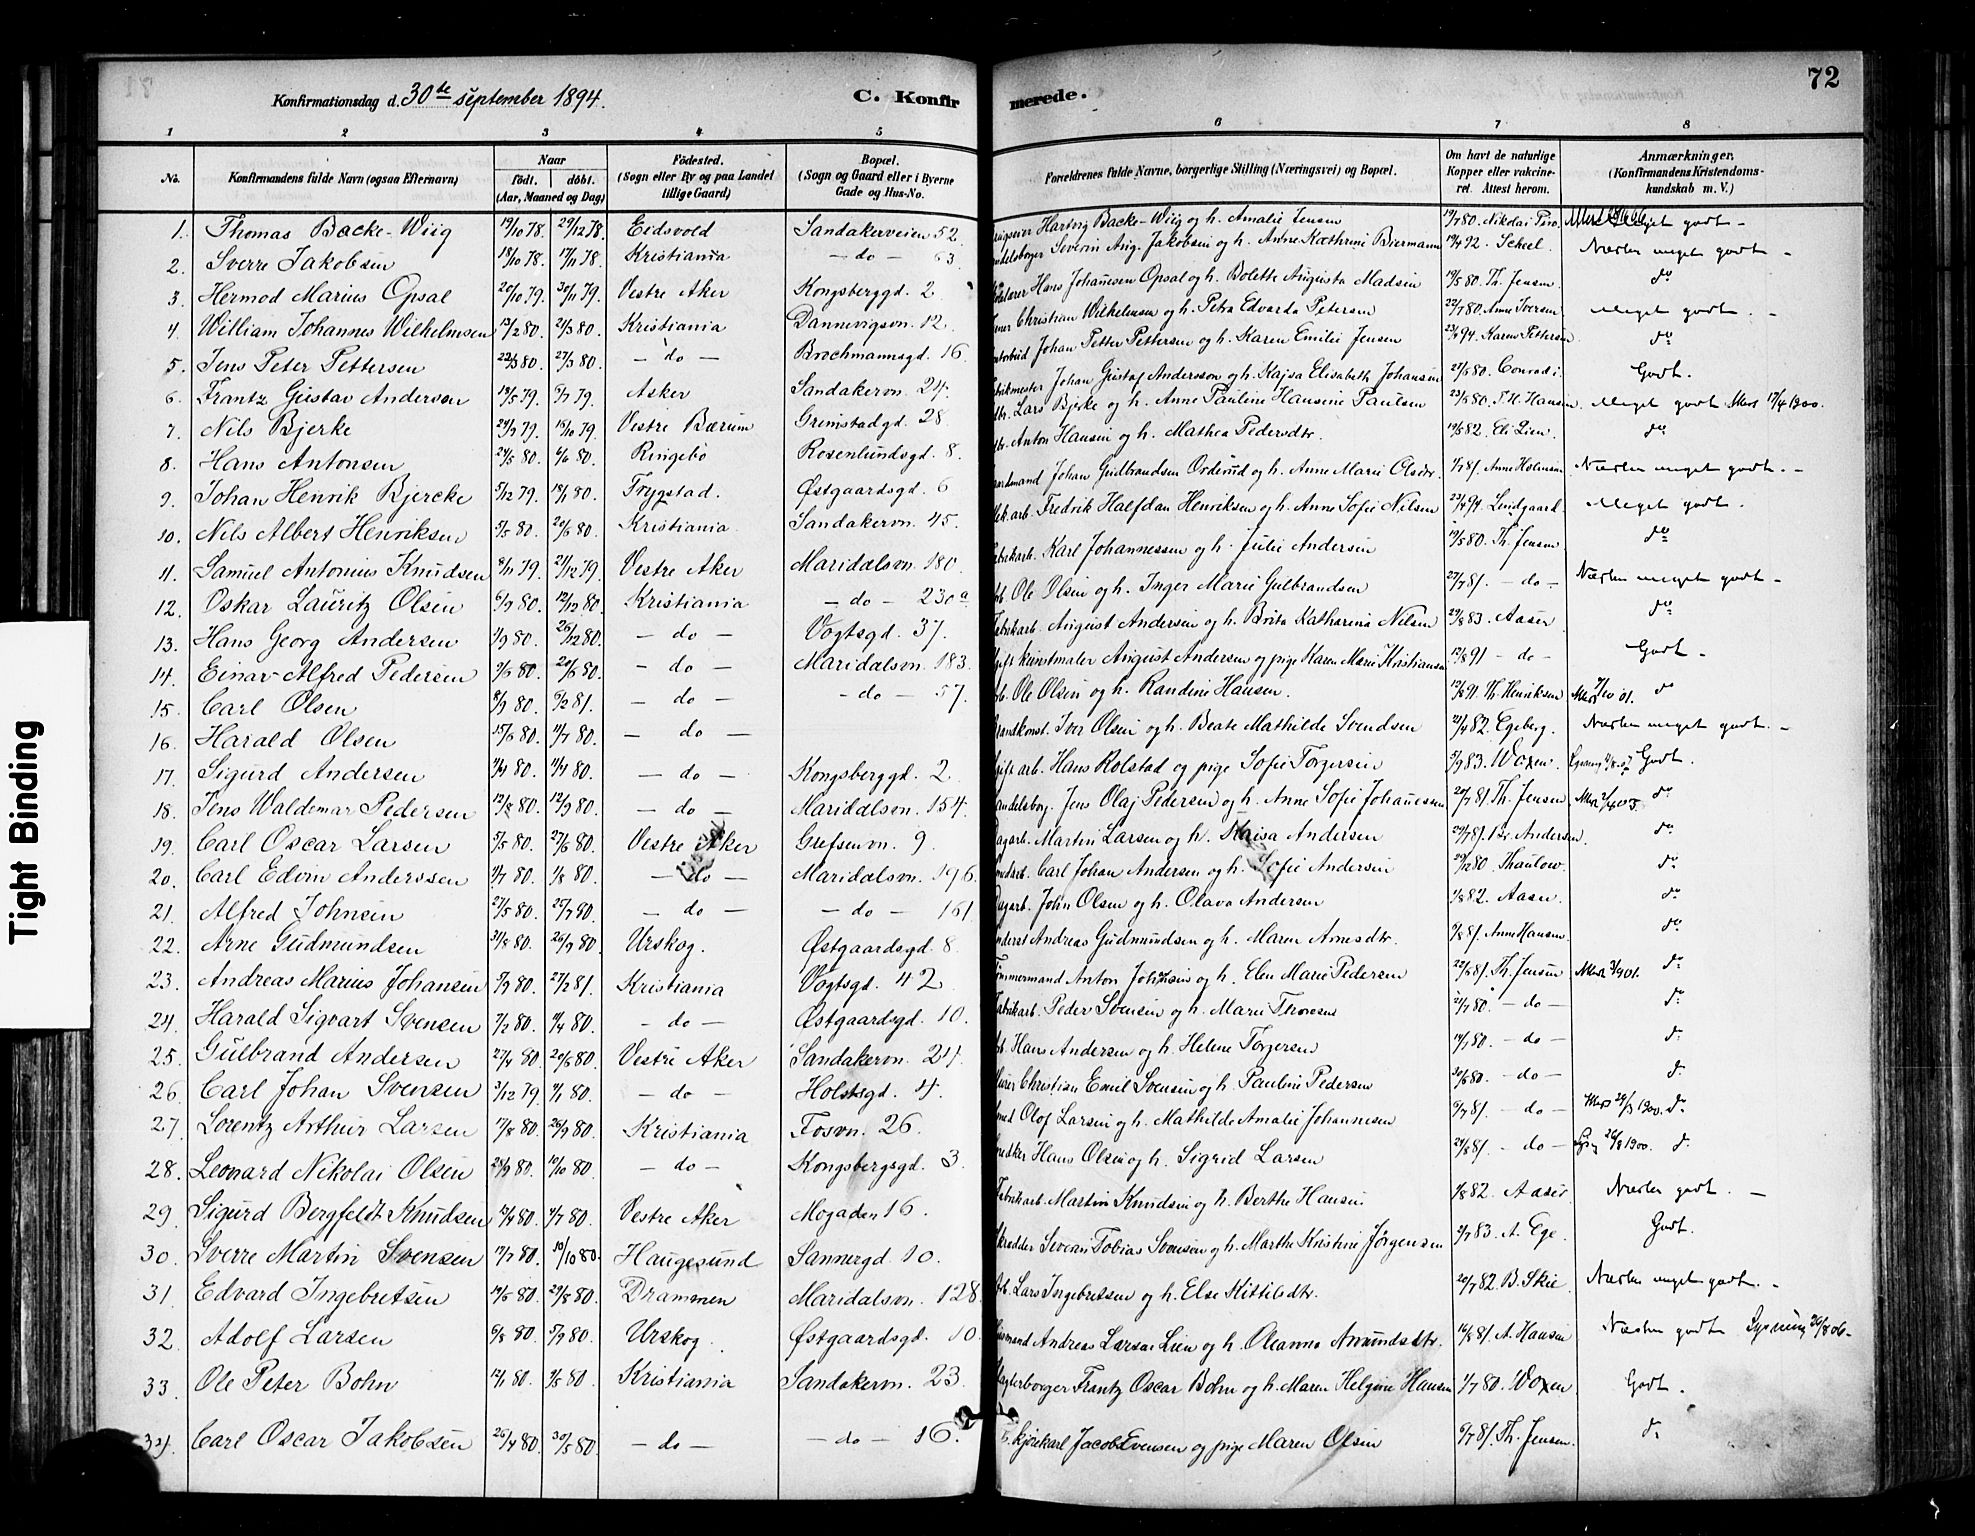 72
Konfirmationsdag d. 30te september 1894.
C. Konfirmerede.
1 2 3 4 5 6 7 8
No. Konfirmandens fulde Navn (ogsaa Efternavn) Naar födt. döbt. (Aar, Maaned og Dag) Födested. (Sogn eller By og paa Landet tillige Gaard) Bopæl. (Sogn og Gaard eller i Byerne Gade og Hus-No. Forældrenes fulde Navne, borgerlige Stilling (Næringsvei) og Bopæl. Om havt de naturlige Kopper eller vaccineret. Attest herom. Anmærkninger. (Konfirmandens Kristendomskundskab m. V.)
1. Thomas Backe-Wiig 19/10 78. 29/12 78. Eidsvold Sandakerveien 52. Hartvig Backe-Wiig og h. Amalie Jensen 19/7 80. Nikolai Meget godt -
2. Sverre Jakobsen 18/10 78. 17/11 78. Kristiania - do - 63. Severin Aug. Jakobsen og h. Anne Kathrine Biermann 19/4 92. Scheel. Næsten meget godt -
3. Hermod Marius Opsal 20/10 79. 30/11 79. Vestre Aker Kongsberggd. 2 Hans Johansen Opsal og h. Bolette Augusta Madsen 19/5 80. Th. Jensen do
4. William Johannes Wilhelmsen 12/2 80. 21/3 80. Kristiania Dannevigsvn. 12. Christian Wilhelmsen og h. Petra Edvarda Petersen 22/7 80. Anne Iversen Meget godt. -
5. Jens Peter Pettersen 22/3 80. 27/3 80. - do - Brochmannsgd. 16 Johan Petter Pettersen og h. Karen Emilie Jensen 23/4 94. Karen Pettersen do
6. Frantz Gustav Andersen 18/5 79. 6/7 79. Asker Sandakervn. 24. Johan Gustaf Andersson og h. Kajsa Elisabeth Johansen 21/5 80. Conradi. Godt.
7. Nils Bjerke 29/7 79. 18/10 79. Vestre Bærum Grimstadgd. 28 Lars Bjerke og h. Anne Pauline Hansine Paulsen 23/6 80. T. H. Hansen Meget godt 17/4 1900.
8. Hans Antonsen 24/5 80. 6/6 80. Ringebo Rosenlundsgd. 8. Anton Hansen og h. Mathea Pedersdtr. 19/6 82. Eli Lien. do
9. Johan Henrik Bjercke 5/12 79. 18/1 80. Trygstad. Østgaardsgd. 6 Johan Gudbrandsen Orderud og h. Anne Marie Olsdtr. 1/7 81. Anne Holmsen Næsten meget godt. -
10. Nils Albert Henriksen 5/5 80. 20/6 80. Kristiania Sandakervn. 45. Fredrik Halfdan Henriksen og h. Anne Sofie Nilsen 23/4 94. Lindgaard. Meget godt.
11. Samuel Antonius Knudsen 8/11 79. 21/12 79. Vestre Aker Maridalsvn. 180. Fabrikarb. Karl Johannessen og h. Julie Andersen 19/5 80. Th. Jensen do
12. Oskar Lauritz Olsen 6/9 80. 12/12 80. Kristiania - do - 230a Ole Olsen og h. Inger Marie Gulbrandsen 27/7 81. - do - Næsten meget godt -
13. Hans Georg Andersen 1/9 80. 26/12 80. - do - Vogtsgd. 37. Fabrikarb. August Andersen og h. Brita Katharina Nilsen 29/8 83. Aaser do
14. Einar Alfred Pedersen 9/6 80. 20/6 80. - do - Maridalsvn. 183. kunstmaler August Andersen og pige Karen Marie Kristiansen 12/8 91 - do - Godt -
15. Carl Olsen 8/9 80. 6/2 81. - do - - do - 57. Ole Olsen og h. Randine Hansen. 12/6 91. Th. Henriksen do
16. Harald Olsen 15/6 80. 11/7 80. - do - Iver Olsen og h. Beate Mathilde Svendsen 21/4 82. Egeberg. Næsten meget godt. -
17. Sigurd Andersen 80. 80. - do - Kongsberggd. 2 Hans Rolstad og pige Sofie Torgersen 5/9 83. Woxen. Godt.
18. Jens Waldemar Pedersen 12/8 80. 12/9 80. - do - Maridalsvn. 154. Handelsborg. Jens Olaj Pedersen og h. Anne Sofie Johannesen 20/7 81. Th. Jensen do
19. Carl Oscar Larsen 5/5 80. 27/6 80. Vestre Aker Grefsenvn. 9. Dagarb. Martin Larsen og h. Kaisa Andersen 29/7 81. Andersen. do
20. Carl Edvin Anderssen 1/7 80. 1/8 80. - do - Maridalsvn. 196. Carl Johan Andersen og h. Sofie Andersen 29/12 80 Thaulow do
21. Alfred Johnsen 27/5 80. 25/7 80. - do - - do - 161. Dagarb. John Olsen og h. Olava Andersen 1/8 82. Aaser do
22. Arne Gudmundsen 31/8 80. 26/9 80 Urskog. Østgaardsgd. 8. Andreas Gudmundsen og h. Maren Arnesdtr. 9/8 81. Anne Hansen. do
23. Andreas Marius Johansen 5/9 80. 27/2 81. Kristiania Vogtsgd. 42 Tømmermand Anton Johansen og h. Elen Marie Pedersen 22/6 81. Th. Jensen do
24. Harald Sigvart Svensen 7/2 80. 11/4 80. - do - Østgaardsgd. 10. Fabrikarb. Peder Svensen og h. Marie Thoresen 21/7 80. - do - do
25. Gulbrand Andersen 27/4 80 20/6 80. Vestre Aker Sandakervn. 24. Hans Andersen og h. Helene Torgersen 14/7 80. - do - do
26. Carl Johan Svensen 3/12 79. 11/1 80. - do - Holstsgd. 4. Christian Emil Svensen og h. Pauline Pedersen 20/6 80. - do - do
27. Lorentz Arthur Larsen 17/8 80. 26/9 80. Kristiania Fosvn. 26. Olof Larsen og h. Mathilde Amalie Johannesen 6/7 81. - do - 29/3 1900. do
28. Leonard Nikolai Olsen 28/9 80. 10/10 80. - do - Kongsbergsgd. 3. Hans Olsen og h. Sigrid Larsen 24/8 81. - do - 26/8 1900. do
29. Sigurd Bergfeldt Knudsen 12/4 80. 4/7 80. Vestre Aker Mogaden 16. Fabrikarb. Martin Knudsen og h. Berthe Hansen 1/8 82. Aaser. Næsten godt. -
30. Sverre Martin Svensen 17/7 80. 10/10 80. Haugesund Sannergd. 10. Skrædder Severin Tobias Svensen og h. Marthe Kristine Jørgensen 2/7 83. A. Ege. Godt.
31. Edvard Ingebretsen 14/6 80. 29/8 80. Drammen Maridalsvn. 128. Lars Ingebretsen og h. Else Kittilsdtr. 20/7 82. B. Skie Næsten meget godt. -
32. Adolf Larsen 6/8 80. 5/9 80. Urskog. Østgaardsgd. 10. Andreas Larsen Lien og h. Oleanna Amundsdtr. 16/8 81. A. Hansen Næsten godt Lysning 26/8 06.
33. Ole Peter Bohn 12/1 80. 3/5 80. Kristiania Sandakervn. 23. Slagterborger Frantz Oscar Bohn og h. Maren Helgine Hansen 1/7 80. Woxen Godt.
34. Carl Oscar Jakobsen 26/4 80. 30/5 80. - do - - do - 16. kjørekarl Jacob Evensen og pige Maren Olsen 6/7 81. Th. Jensen. do
Tight Binding